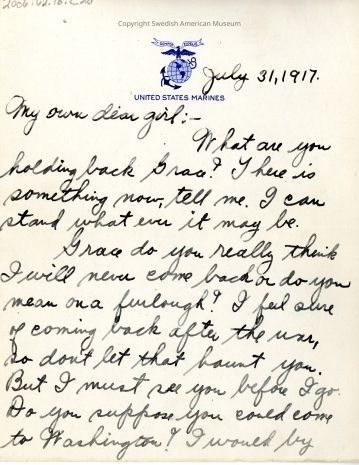 2006:62.16.C20
Copyright Swedish American Museum
UNITED STATES MARINES
July 31, 1917.
My own dear girl:-
What are you
holding back Grace? There is
something now, tell me. I can
stand what ever it may be.
Grace do you really think
I will never come back or do you
mean on a furlough? I feel sure
of coming back after the war,
so don't let that haunt you.
But I must see you before I go.
Do you suppose you could come
to Washington? I would by